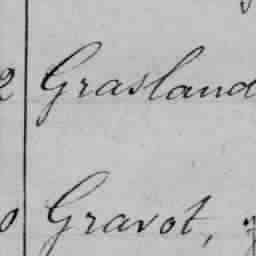 2 Grasland
0 Gravot,